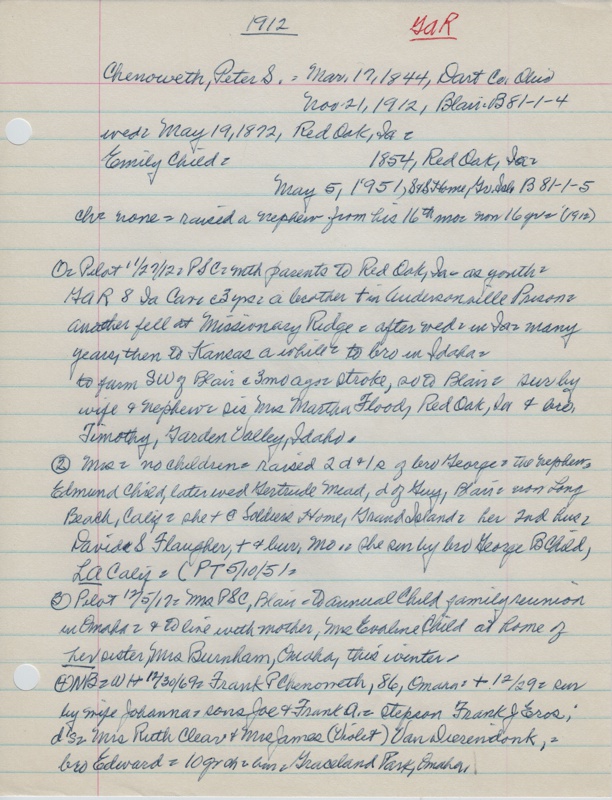 1912 GaR
Chenoweth, Peter S. = Mar. 17, 1844, Dart Co. Ohio
Nov. 21, 1912, Blair = B 81-1-4
wed = May 19, 1872, Red Oak, Ia =
Emily Child = 1854, Red Oak, Ia =
May 5, 1951, S&S Home, Gr. Isle B 81-1-5
ch = none = raised a nephew from his 16th mo = now 16 yr = (1912)
O = Pilot 11/27/12 = PSC = with parents to Red Oak, Ia = as youth =
GaR 8 Ia Cav = c 3 yrs = a brother + in Andersonville Prison =
another fell at Missionary Ridge = after wed = in Ia = many
years, then to Kansas a while = to bro in Idaho =
to farm SW of Blair c 3 mo ago = stroke, so to Blair = sur by
wife & nephew = sis Mrs Martha Flood, Red Oak, Ia & bro
Timothy, Garden Valley, Idaho.
② Mrs = no children = raised 2 d & 1 s of bro George = the nephew,
Edmund Child, later wed Gertrude Mead, d of Guy, Blair = now Long
Beach, Calif = she + @ Soldiers Home, Grand Island = her 2nd hus =
David S Flaugher, + & bur, Mo .. she sur by bro George B Child,
LA Calif = (PT 5/10/51 =
③ Pilot 12/5/17 = Mrs PSC, Blair = to annual Child family reunion
in Omaha = & to live with mother, Mrs Evaline Child at home of
her sister, Mrs Burnham, Omaha, this winter.
④ NB = WH 12/30/69 = Frank P Chenoweth, 86, Omaha = + 12/29 = sur
by wife Johanna = sons Joe & Frank A. = stepson Frank J Eros;
d's = Mrs Ruth Cleav & Mrs James (Violet) Van Dierendonk, =
bro Edward = 10 gr ch = bur = Graceland Park, Omaha.